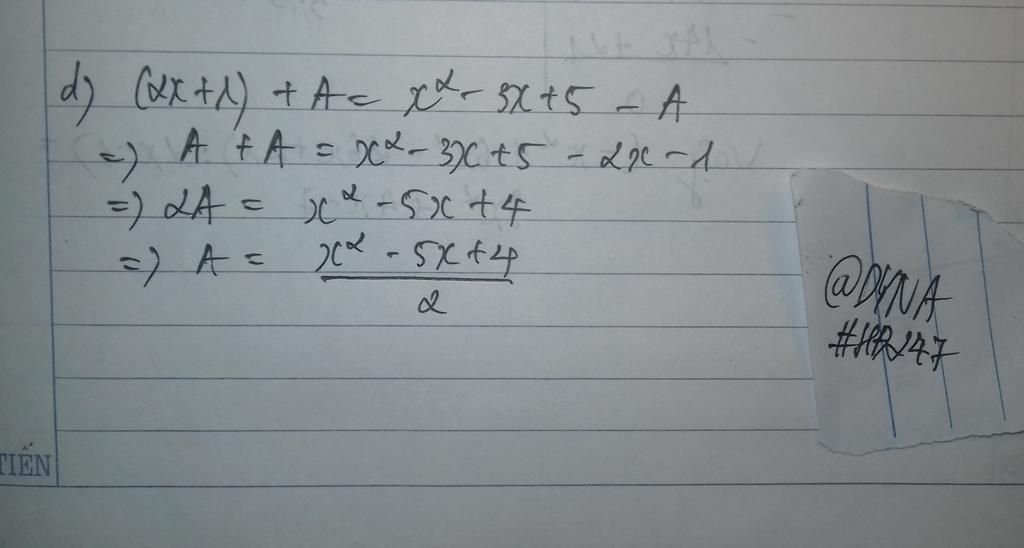 d) (2x+1) + A = x² - 3x+5 - A
=> A + A = x² - 3x+5 - 2x - 1
=> 2A = x² - 5x + 4
=> A = x² - 5x+4
2
@DYNA
TIẾN